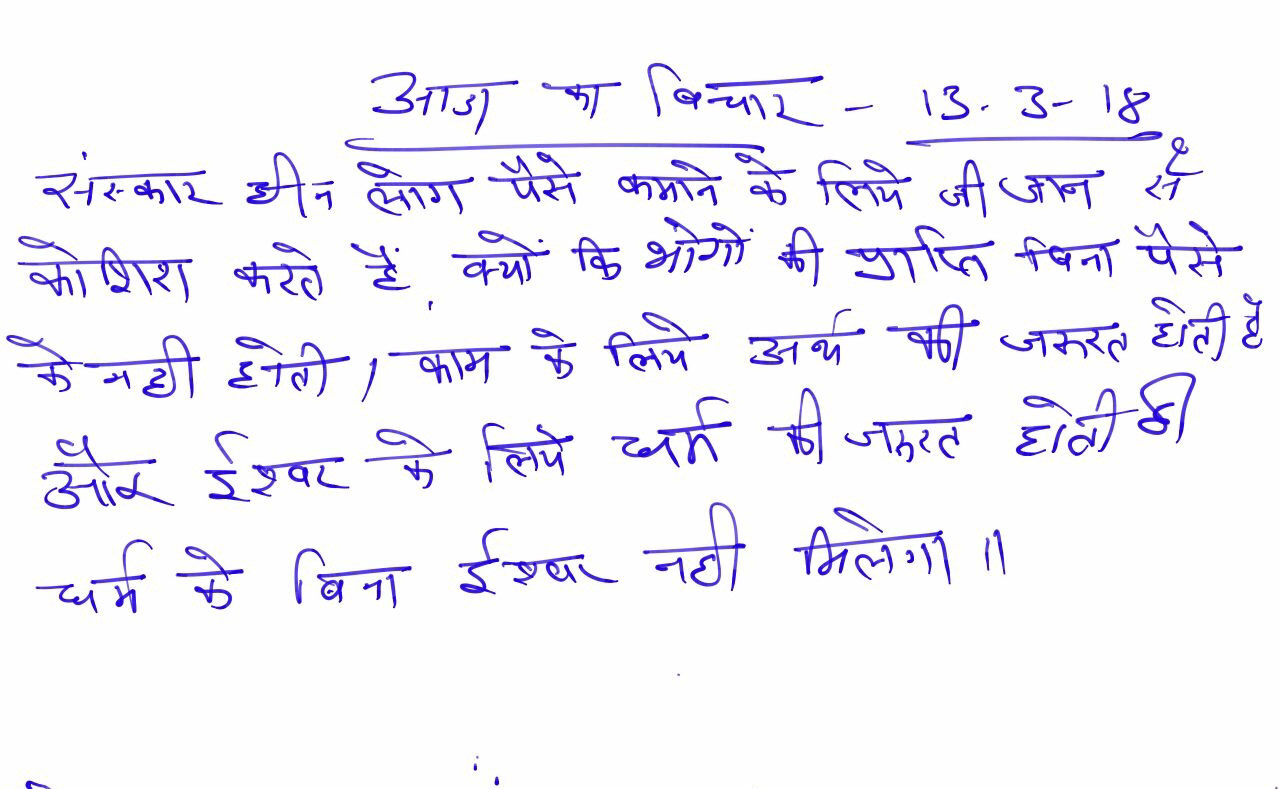 आज का विचार - 13.3-18
संस्कार हीन लोग पैसे कमाने के लिये जी जान से
कोशिश करते हैं, क्यों कि भोगों की प्राप्ति बिना पैसे
के नही होती, काम के लिये अर्थ की जरूरत होती है
और ईश्वर के लिये धर्म की जरूरत होती ही
धर्म के बिना ईश्वर नही मिलेगा ॥